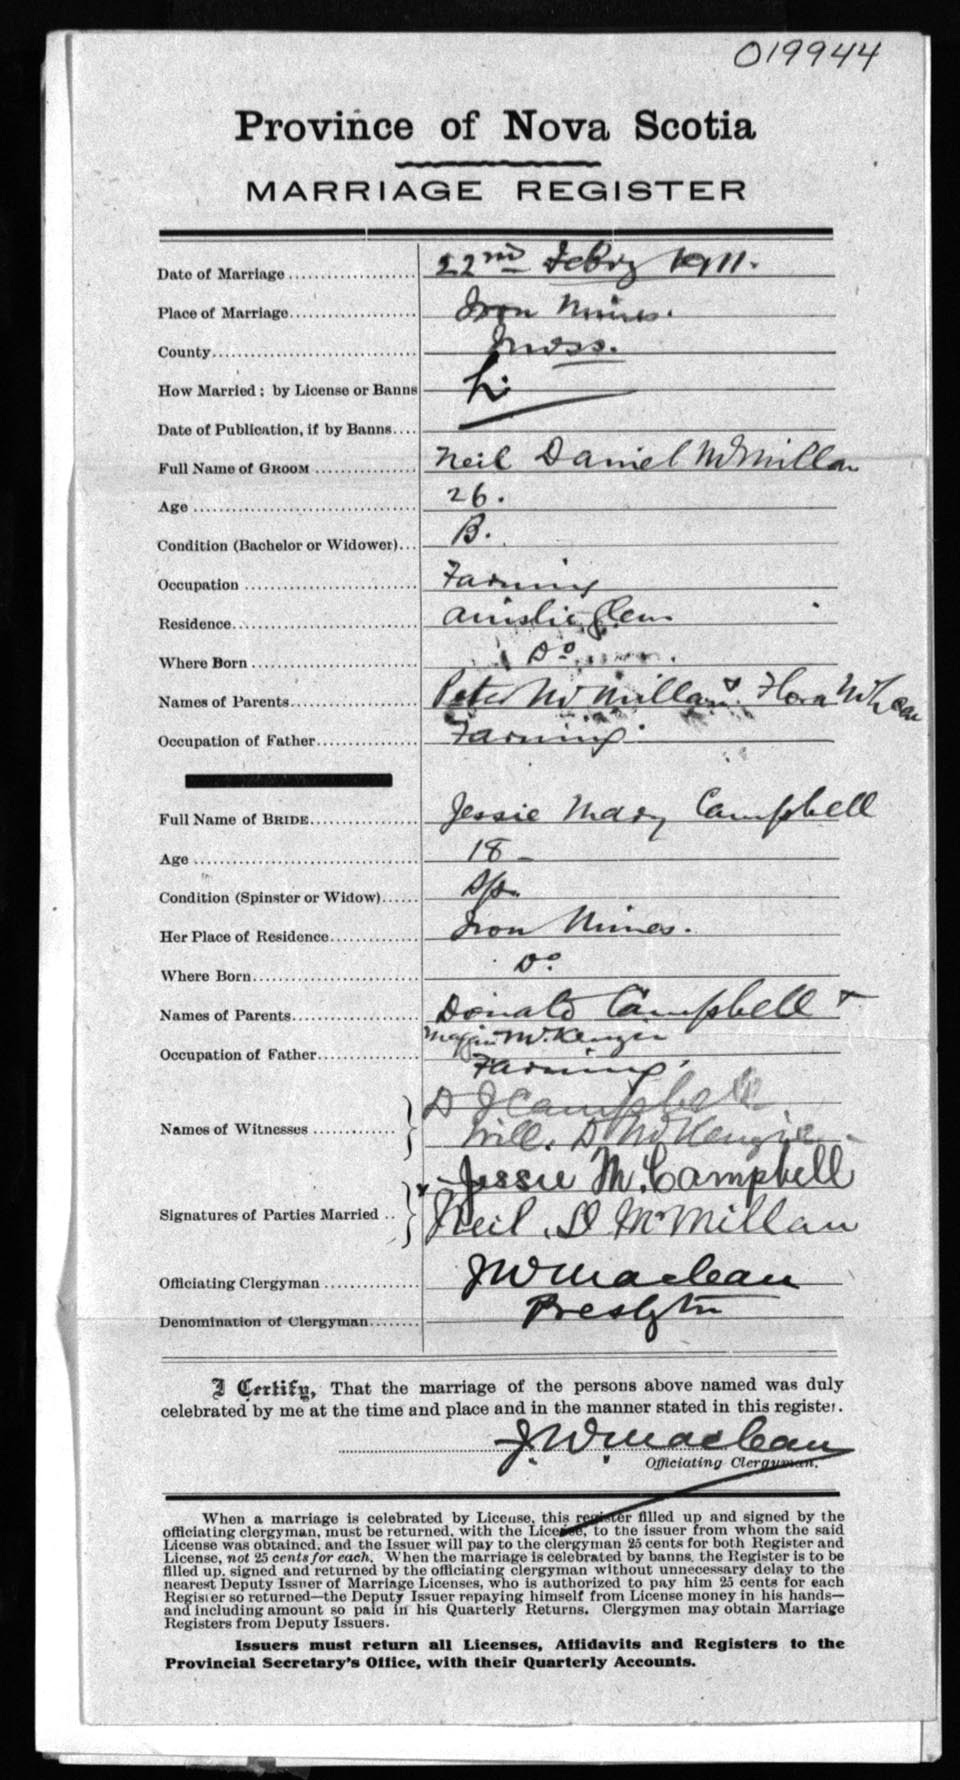 019944
Province of Nova Scotia
MARRIAGE REGISTER
Date of Marriage 22nd Febry 1911.
Place of Marriage Iron Mines.
County Invss.
How Married; by License or Banns L.
Date of Publication, if by Banns
Full Name of GROOM Neil Daniel McMillan
Age 26.
Condition (Bachelor or Widower) B.
Occupation Farming
Residence Ainslie Glen
Where Born Do
Names of Parents Peter McMillan & Flora McLean
Occupation of Father Farming
Full Name of BRIDE Jessie Mary Campbell
Age 18
Condition (Spinster or Widow) Sp.
Her Place of Residence Iron Mines.
Where Born Do
Names of Parents Donald Campbell &
McKenzie
Occupation of Father Farming
D J Campbell
Names of Witnesses Will. D McKenzie
Jessie M. Campbell
Signatures of Parties Married Neil. D McMillan
Officiating Clergyman J W Maclean
Denomination of Clergyman Presbytn
I Certify, That the marriage of the persons above named was duly
celebrated by me at the time and place and in the manner stated in this register.
J. W. Maclean
Officiating Clergyman.
When a marriage is celebrated by License, this register filled up and signed by the
officiating clergyman, must be returned, with the License, to the issuer from whom the said
License was obtained, and the Issuer will pay to the clergyman 25 cents for both Register and
License, not 25 cents for each. When the marriage is celebrated by banns, the Register is to be
filled up, signed and returned by the officiating clergyman without unnecessary delay to the
nearest Deputy Issuer of Marriage Licenses, who is authorized to pay him 25 cents for each
Register so returned—the Deputy Issuer repaying himself from License money in his hands—
and including amount so paid in his Quarterly Returns. Clergymen may obtain Marriage
Registers from Deputy Issuers.
Issuers must return all Licenses, Affidavits and Registers to the
Provincial Secretary's Office, with their Quarterly Accounts.